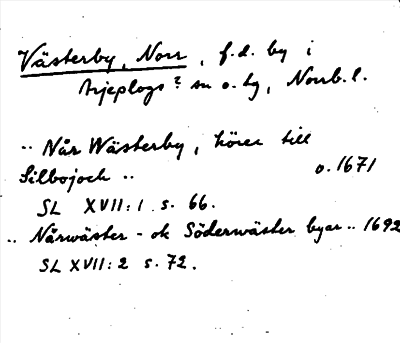 Västerby, Norr, f.d. by i
Arjeplogs? sn o. tg, Norrb. l.
.. Når Wästerby, hörer till
Silbojoch .. o. 1671
SL XVII:1 s. 66.
.. Nårwäster - ok Söderwäster byar .. 1692
SL XVII:2 s. 72.